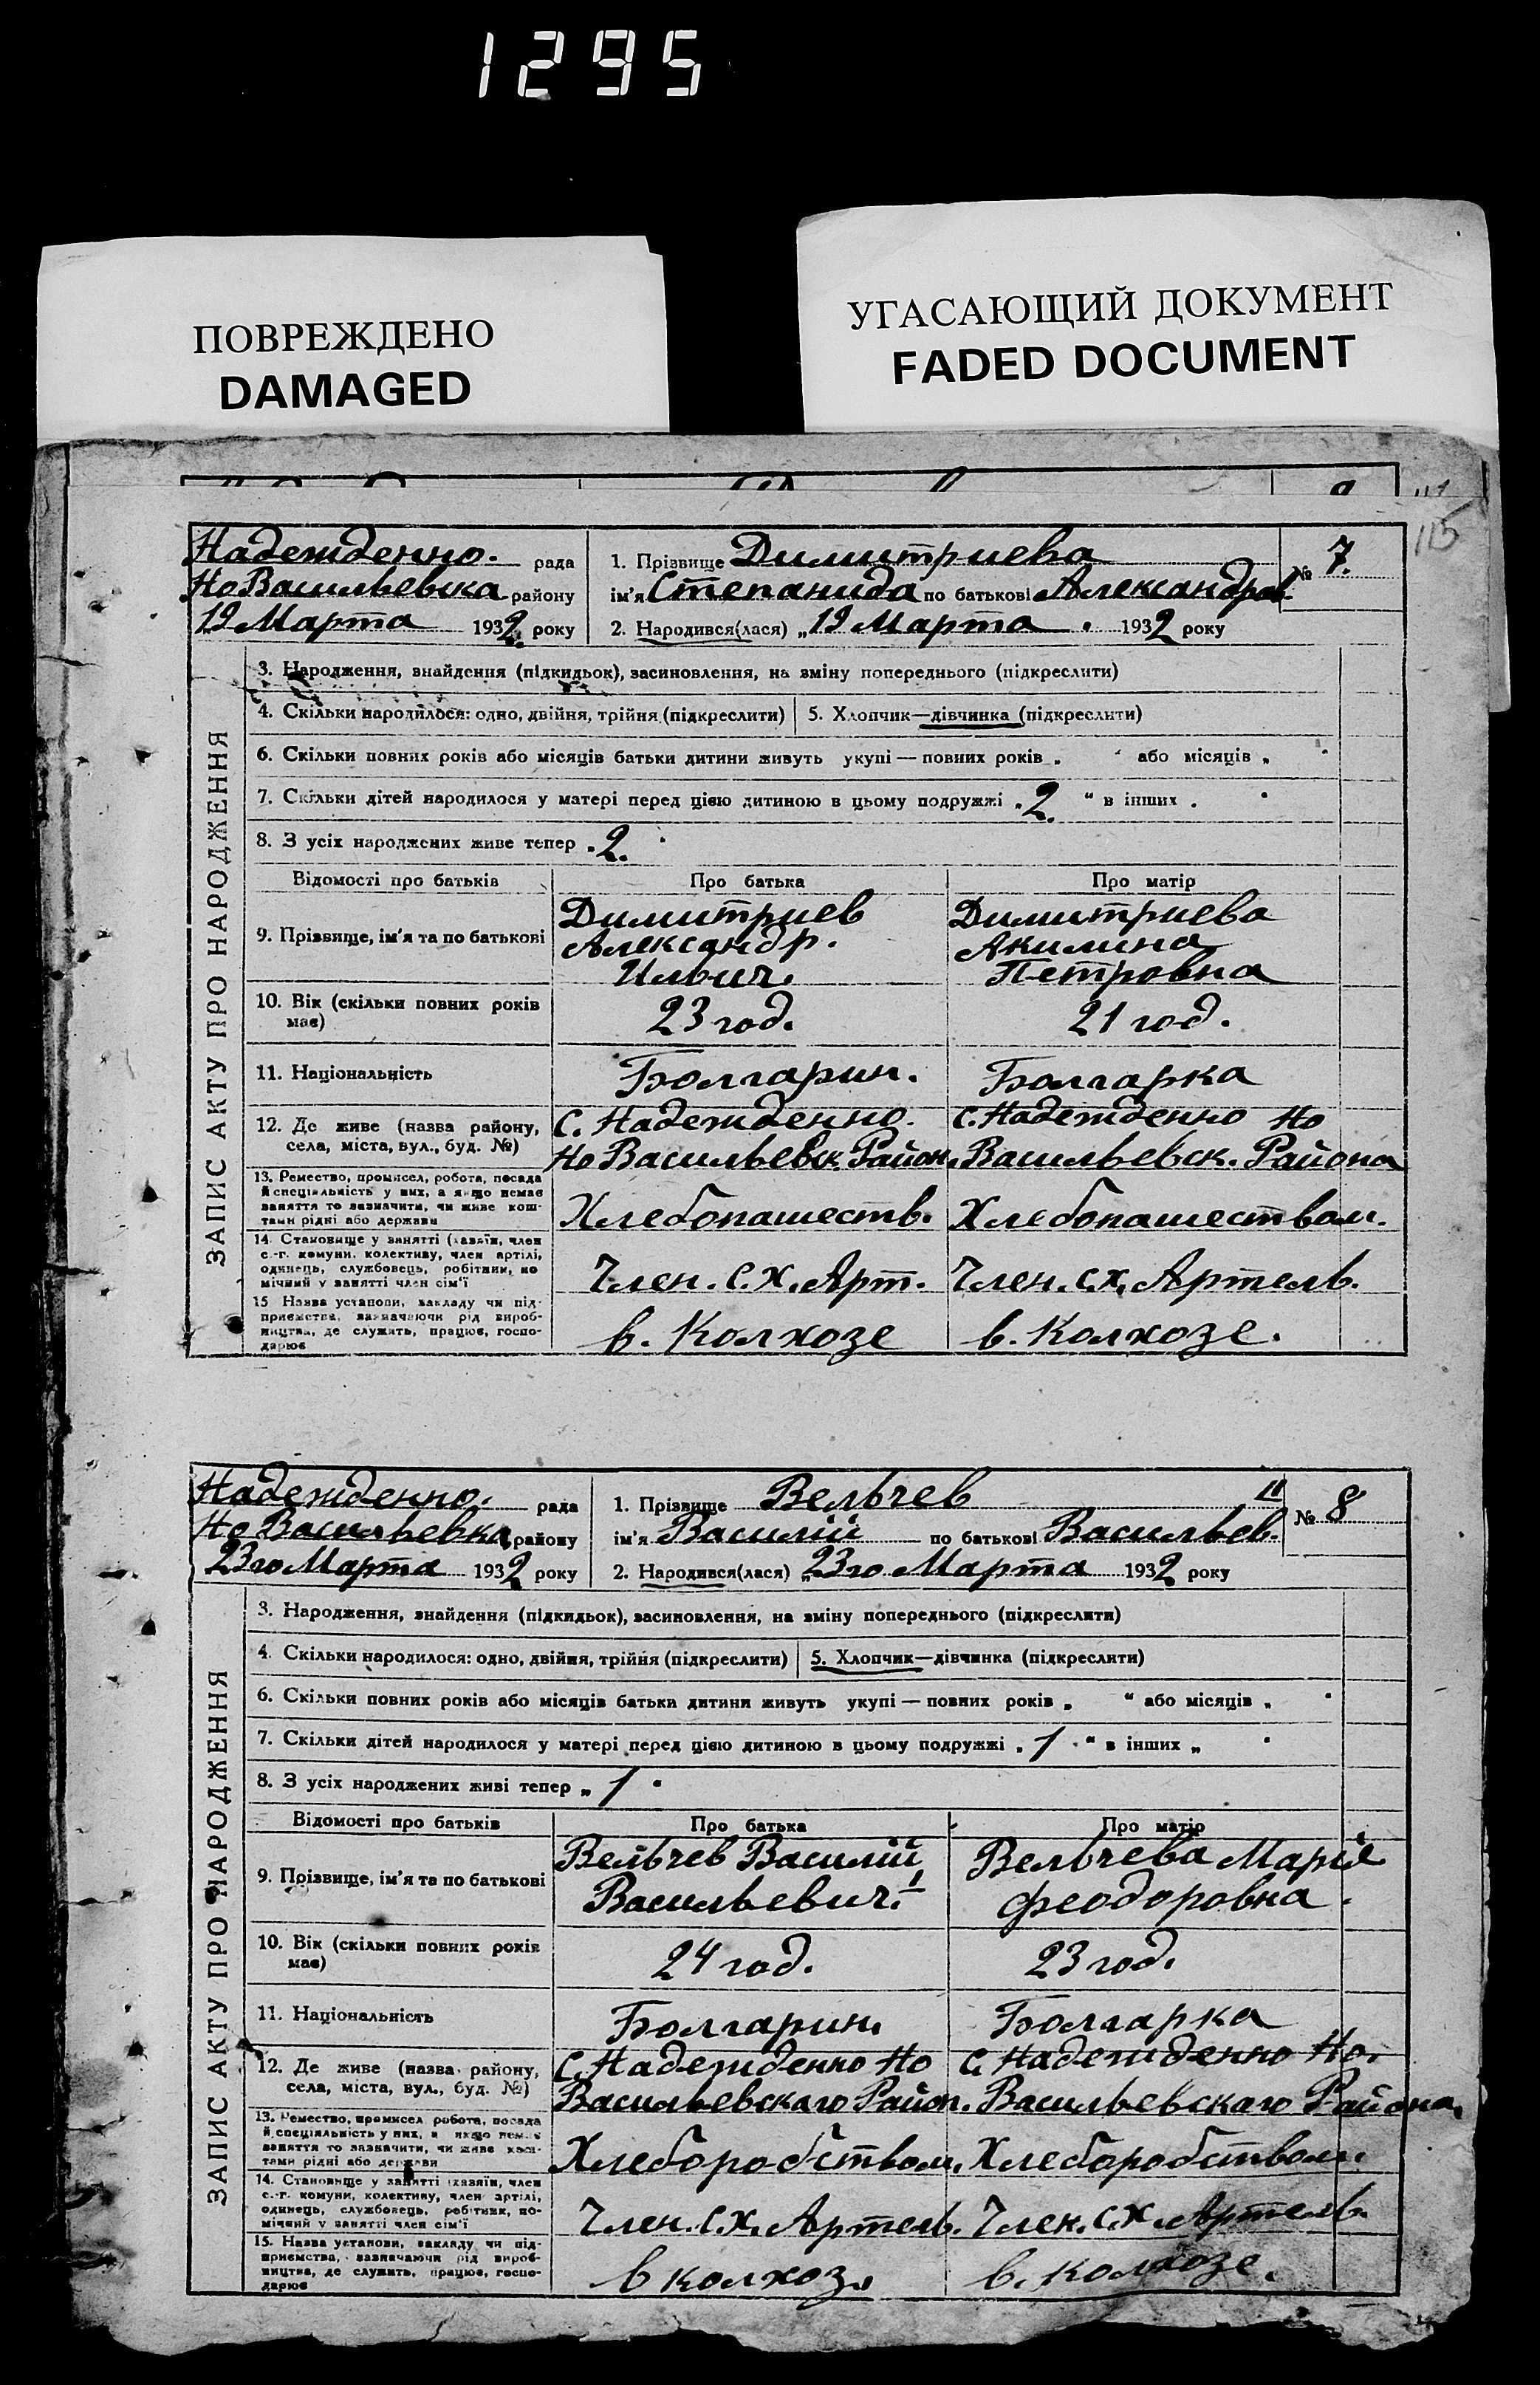 1295
ПОВРЕЖДЕНО
DAMAGED
УГАСАЮЩИЙ ДОКУМЕНТ
FADED DOCUMENT
115
ЗАПИС АКТУ ПРО НАРОДЖЕННЯ
Надежденно. рада
Но Васильевка району
19 Марта 1932 року
1. Прізвище Димитриева
№ 7.
ім'я Степанида по батькові Александров.
2. Народився(лася) „19 Марта 1932 року
3. Народження, знайдення (підкидьок), засиновлення, на зміну попереднього (підкреслити)
4. Скільки народилося: одно, двійня, трійня (підкреслити) 5. Хлопчик—дівчинка (підкреслити)
6. Скільки повних років або місяців батьки дитини живуть укупі — повних років „ “ або місяців „ “
7. Скільки дітей народилося у матері перед цією дитиною в цьому подружжі „2“ в інших „ “
8. З усіх народжених живе тепер „2.“
Відомості про батьків Про батька Про матір
9. Прізвище, ім'я та по батькові
Димитриев
Александр.
Ильич.
Димитриева
Акилина
Петровна
10. Вік (скільки повних років
має)
23 год. 21 год.
11. Національність Болгарин. Болгарка
12. Де живе (назва району,
села, міста, вул., буд. №)
С. Надежденно.
Но Васильевск. Район.
С. Надежденно Но
Васильевск. Района
13. Ремество, промисел, робота, посада
й спеціяльність у них, а якщо немає
заняття то зазначити, чи живе кош-
тами рідні або держави
Хлебопашеств. Хлебопашеством.
14. Становище у занятті (хазяїн, член
с.-г. комуни, колективу, член артілі,
одинець, службовець, робітник, по
мічний у занятті член сім'ї
Член. С. Х. Арт. Член. С.Х. Артель.
15 Назва установи, закладу чи під-
приємства, зазначаючи рід вироб-
ництва, де служить, працює, госпо-
дарює
в. Колхозе в. Колхозе.
ЗАПИС АКТУ ПРО НАРОДЖЕННЯ
Надежденно. рада
Но Васильевка району
23го Марта 1932 року
1. Прізвище Вельчев II
№ 8
ім'я Василій по батькові Васильев.
2. Народився(лася) „23го Марта 1932 року
3. Народження, знайдення (підкидьок), засиновлення, на зміну попереднього (підкреслити)
4. Скільки народилося: одно, двійня, трійня (підкреслити) 5. Хлопчик—дівчинка (підкреслити)
6. Скільки повних років або місяців батьки дитини живуть укупі — повних років „ “ або місяців „ “
7. Скільки дітей народилося у матері перед цією дитиною в цьому подружжі „1“ в інших „ “
8. З усіх народжених живі тепер „1“
Відомості про батьків Про батька Про матір
9. Прізвище, ім'я та по батькові
Вельчев Василій
Васильевич. I
Вельчева Марія
Феодоровна
10. Вік (скільки повних років
має)
24 год. 23 год.
11. Національність Болгарин. Болгарка
12. Де живе (назва району,
села, міста, вул., буд. №)
С. Надежденно Но
Васильевскаго Район.
С. Надежденно Но.
Васильевскаго Района.
13. Ремество, промисел робота, посада
й спеціяльність у них, а якщо немає
заняття то зазначити, чи живе кош-
тами рідні або держави
Хлеборобством. Хлеборобством.
14. Становище у занятті (хазяїн, член
с.-г. комуни, колективу, член артілі,
одинець, службовець, робітник, по-
мічний у занятті член сім'ї
Член. С.Х. Артель. Член. С.Х. Артель.
15. Назва установи, закладу чи під-
приємства, зазначаючи рід вироб-
ництва, де служить, працює, госпо-
дарює
в колхоз. в. колхозе.